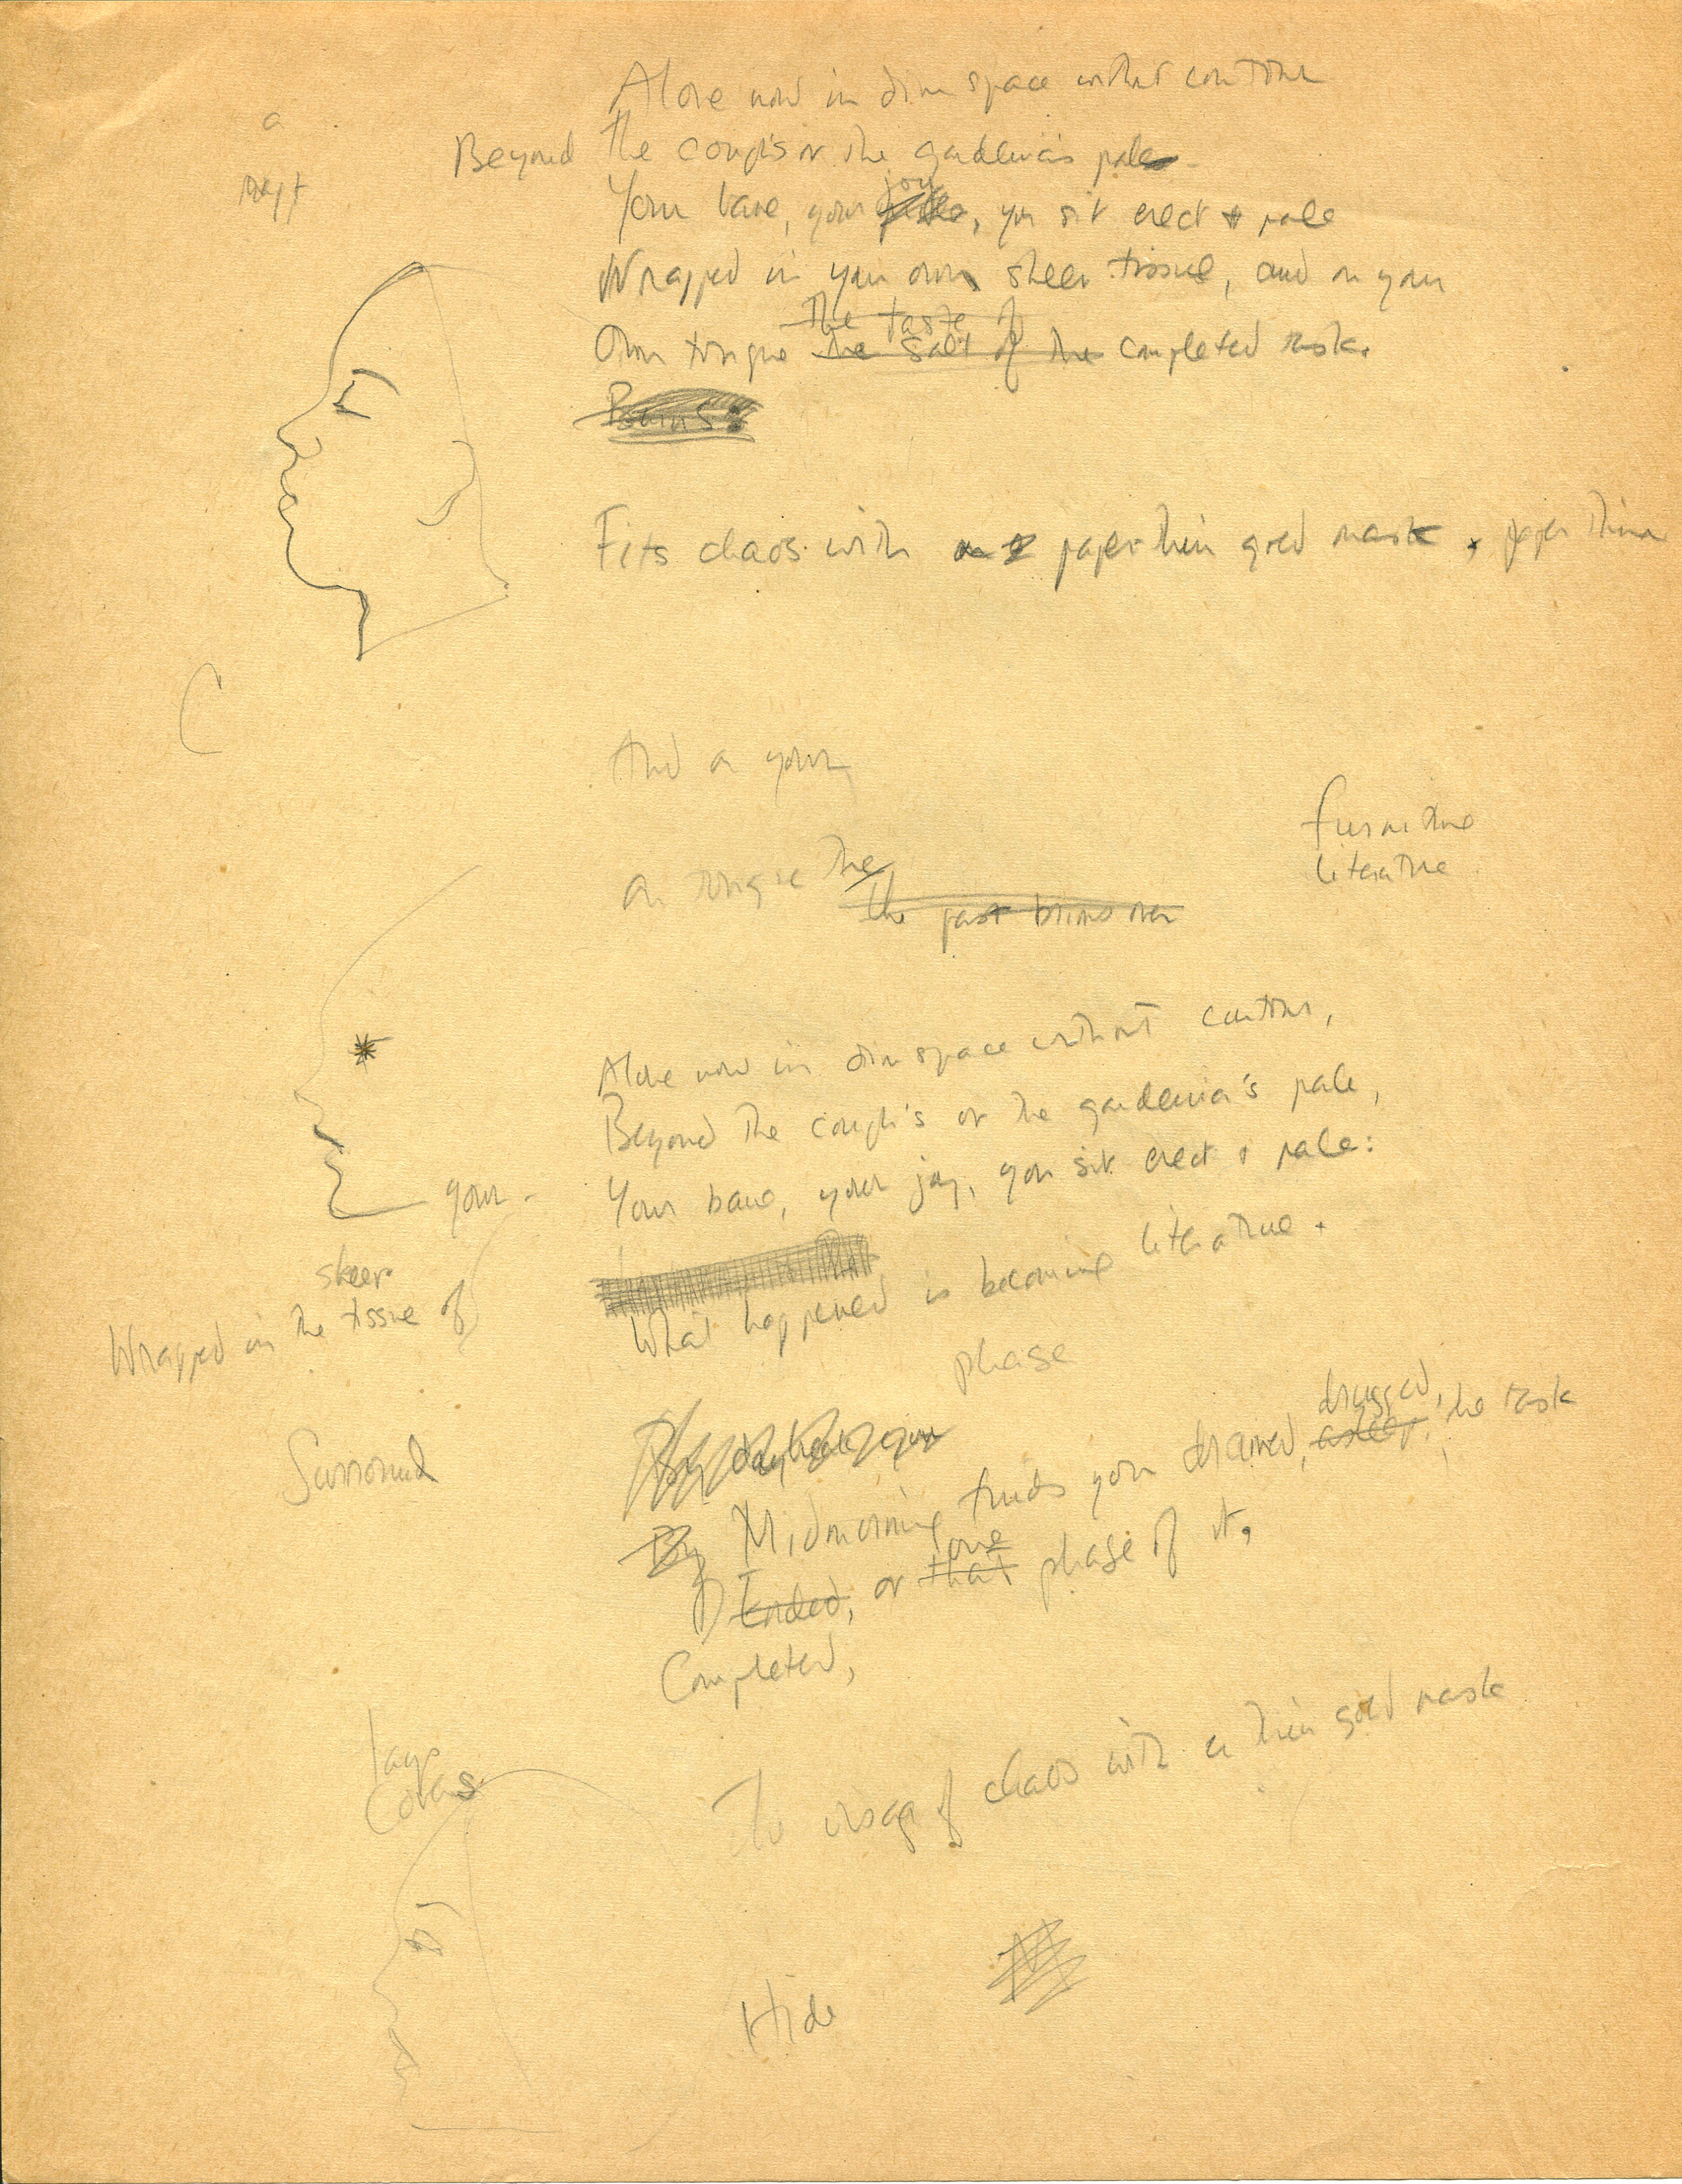 Alone now in dim space without contour
a
Beyond the cough's or the gardenia's pale
joy
Your bane, your, you sit erect + pale
Wrapped in your own sheer tissue, and on your
The taste of
Own tongue the salt of the completed task.
Fits chaos with paper thin gold mask, paper thin
And on your
furniture
on tongue the
literature
the past brims over
Alone now in dim space without contour,
Beyond the cough's or the gardenia's pale,
Your bane, your joy, you sit erect + pale:
your
sheer
Wrapped in the tissue of
What happened is becoming literature.
phase
drugged,
Surround
By daybreak your
By Midmorning finds you drained, asleep, the task
one
Ended, or that phase of it,
Completed,
lays
Covers
The visage of chaos with a thin gold mask
Hide